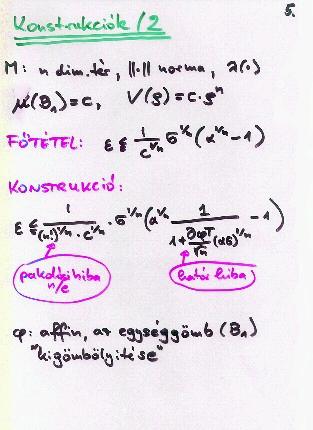 5.
Konstrukciók/2
M: n dim. tér, ||·|| norma, λ(·)
μ(B₁)=c, V(ρ)=c·ρⁿ
FŐTÉTEL: ε ≤ 1/c^{1/n} σ^{1/n} (α^{1/n} - 1)
KONSTRUKCIÓ:
ε ≤ 1/((n!)^{1/n} · c^{1/n}) · σ^{1/n} (α^{1/n} 1/(1+ (αδ)^{1/n}) - 1)
pakolási hiba határ hiba
n/e
φ: affin, az egységgömb (B₁)
"kigömbölyítése"